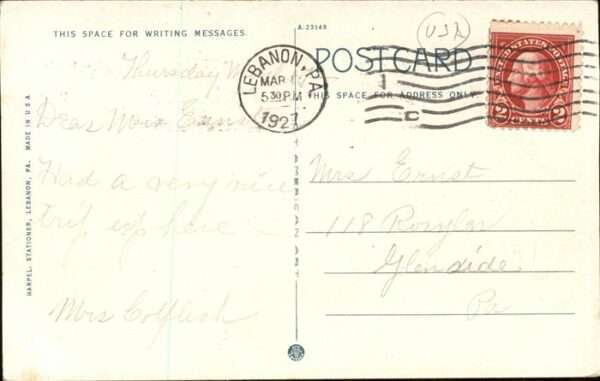 THIS SPACE FOR WRITING MESSAGES.
A-23149
USA
POSTCARD
THIS SPACE FOR ADDRESS ONLY
LEBANON, PA
MAR
5 30 PM
1927
UNITED STATES POSTAGE
2 CENTS 2
Thursday
Dear Mrs
Had a very nice
trip up here
Mrs
Mrs Ernst
118
Glenside
Pa
HARPEL, STATIONER, LEBANON, PA. MADE IN U.S.A